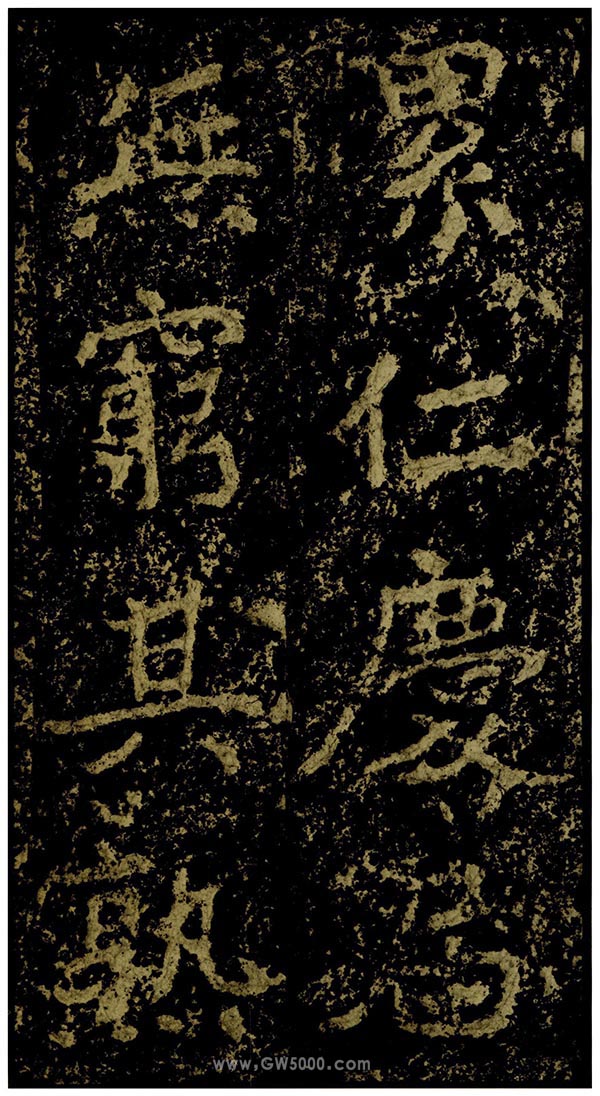 累仁慶
無窮其孰
www.GW5000.com